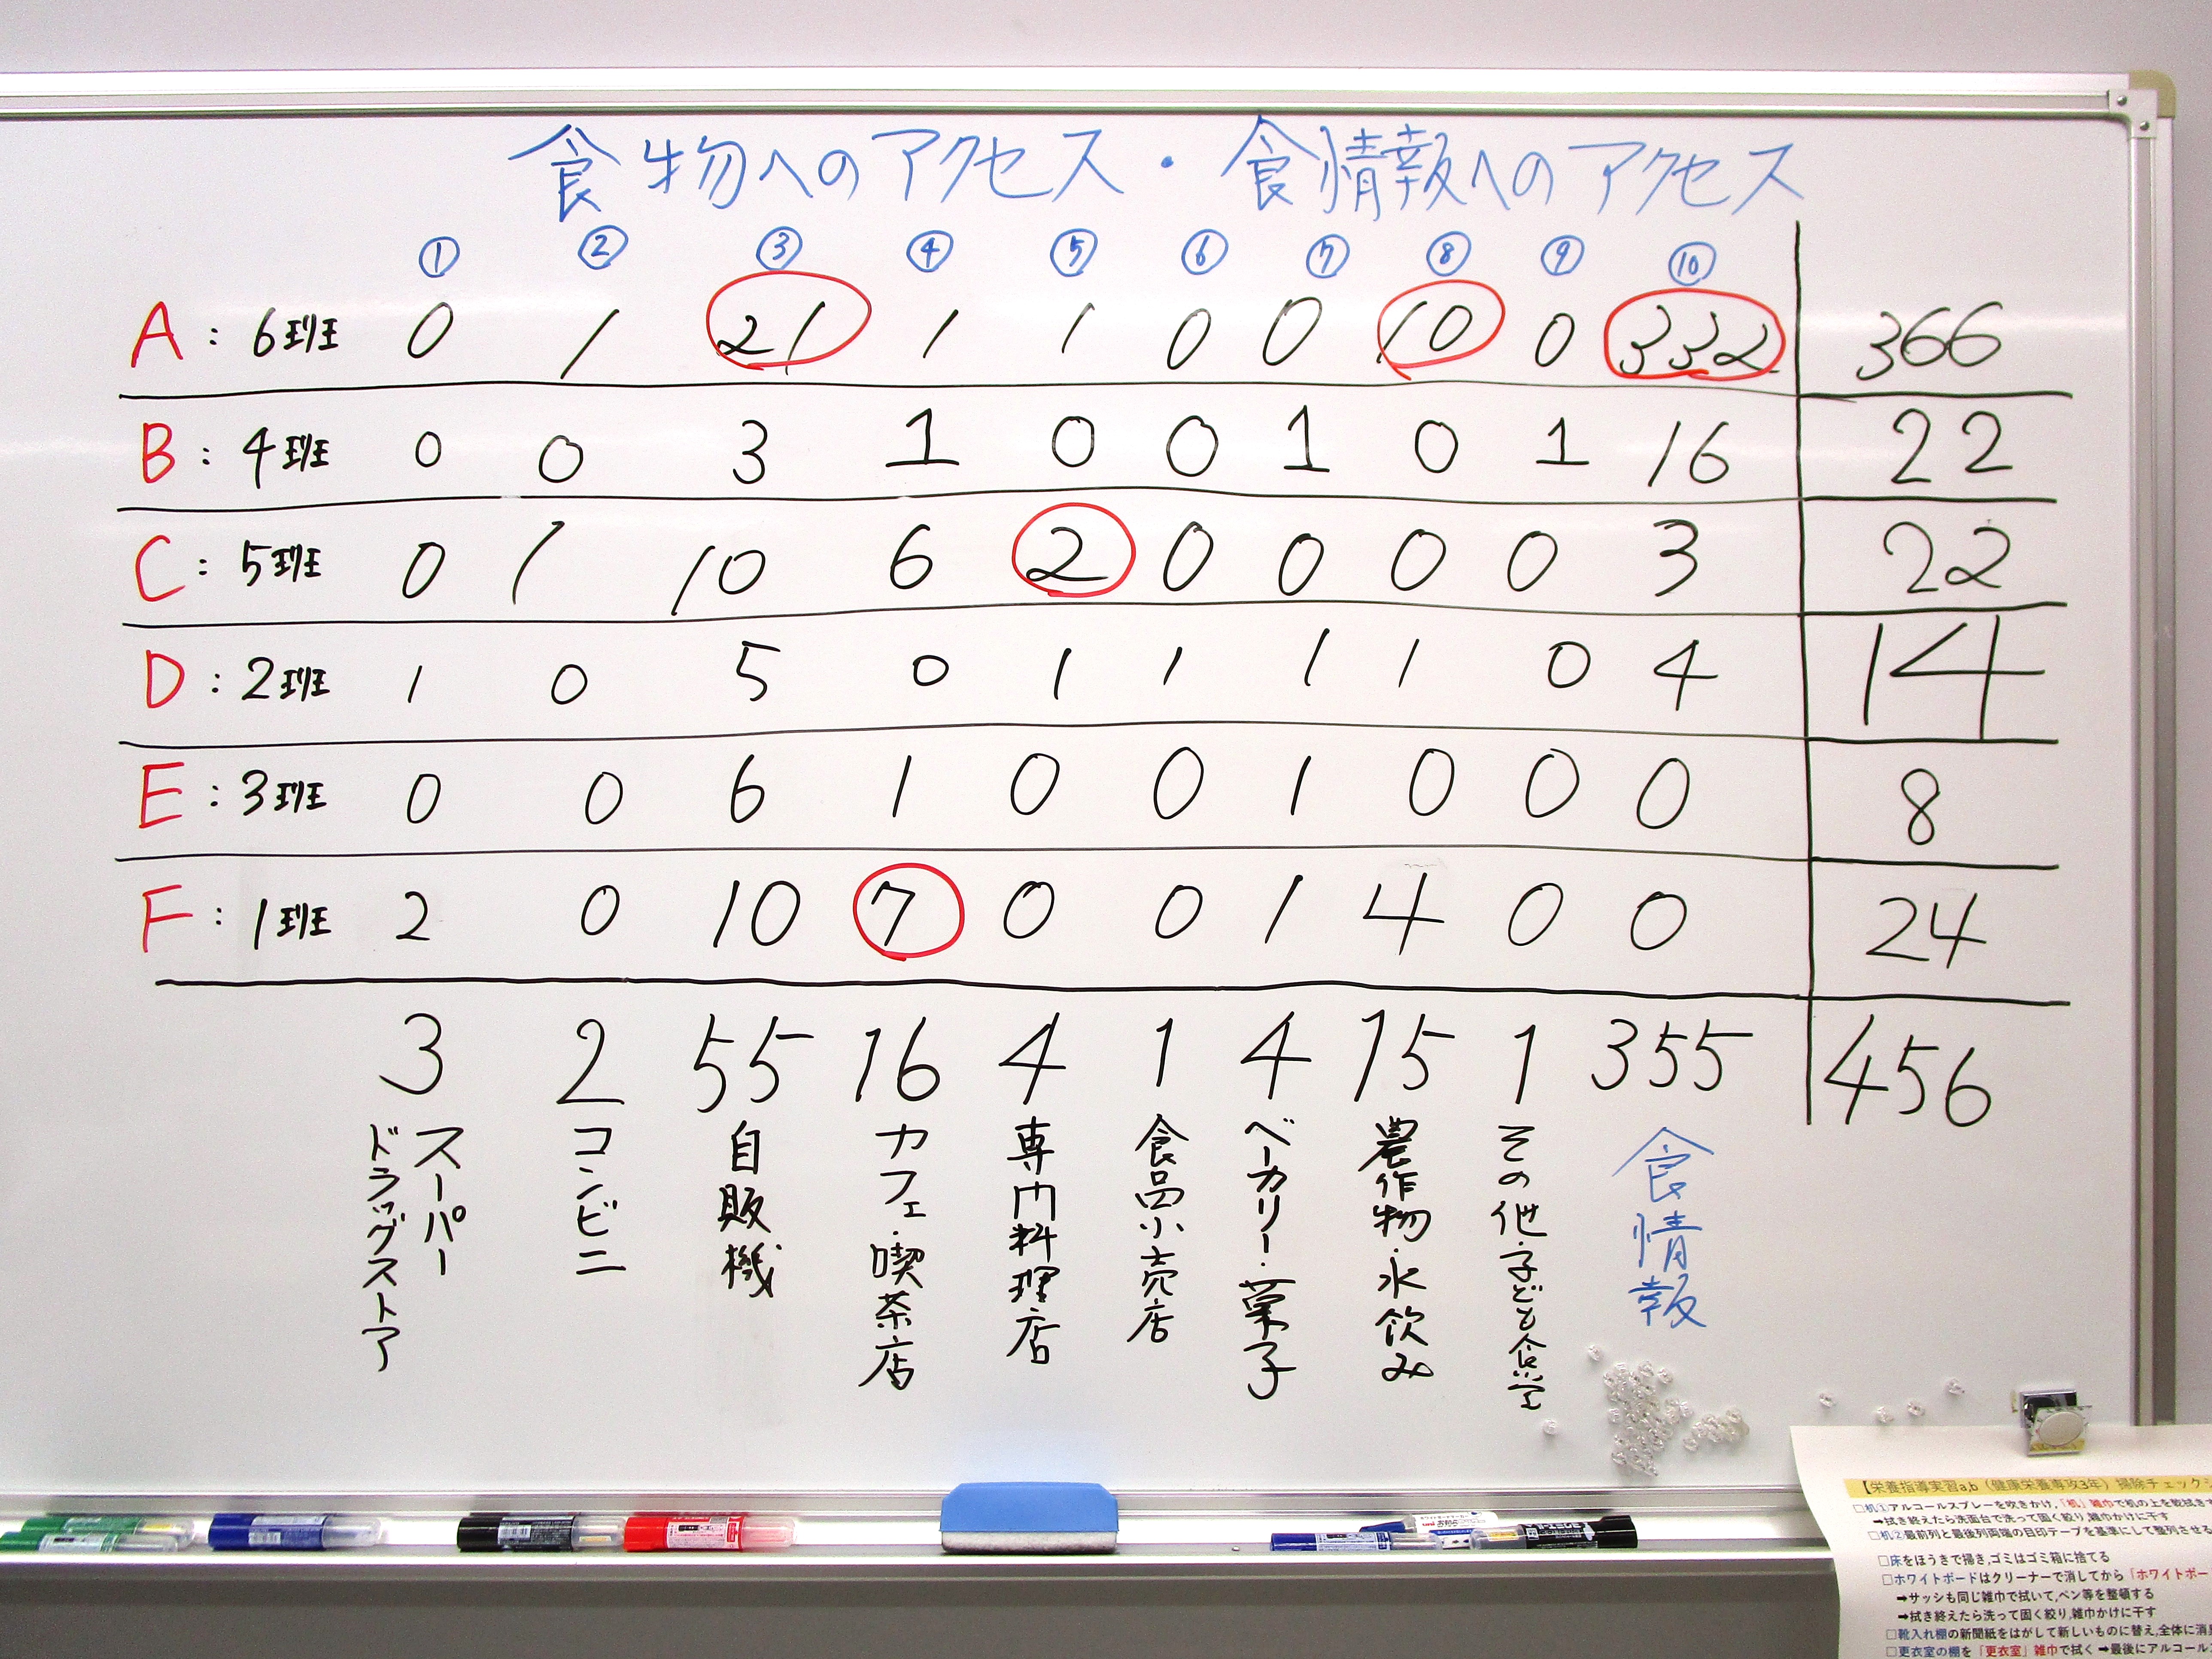 食物へのアクセス・食情報へのアクセス
① ② ③ ④ ⑤ ⑥ ⑦ ⑧ ⑨ ⑩
A：6班 0 1 21 1 1 0 0 10 0 332 366
B：4班 0 0 3 1 0 0 1 0 1 16 22
C：5班 0 1 10 6 2 0 0 0 0 3 22
D：2班 1 0 5 0 1 1 1 1 0 4 14
E：3班 0 0 6 1 0 0 1 0 0 0 8
F：1班 2 0 10 7 0 0 1 4 0 0 24
3 2 55 16 4 1 4 15 1 355 456
スーパー
ドラッグストア
コンビニ
自販機
カフェ・喫茶店
専門料理店
食品小売店
ベーカリー・菓子
農作物・水飲み
その他・子ども食堂
食情報
【栄養指導実習a,b（健康栄養専攻3年）掃除チェック
□机①アルコールスプレーを吹きかけ,「机」雑巾で机の上を乾拭き
➡拭き終えたら洗面台で洗って固く絞り,雑巾かけに干す
□机②最前列と最後列両端の目印テープを基準にして整列させる
□床をほうきで掃き,ゴミはゴミ箱に捨てる
□ホワイトボードはクリーナーで消してから「ホワイトボー
➡サッシも同じ雑巾で拭いて,ペン等を整頓する
➡拭き終えたら洗って固く絞り,雑巾かけに干す
□靴入れ棚の新聞紙をはがして新しいものに替え,全体に消
□更衣室の棚を「更衣室」雑巾で拭く➡最後にアルコール